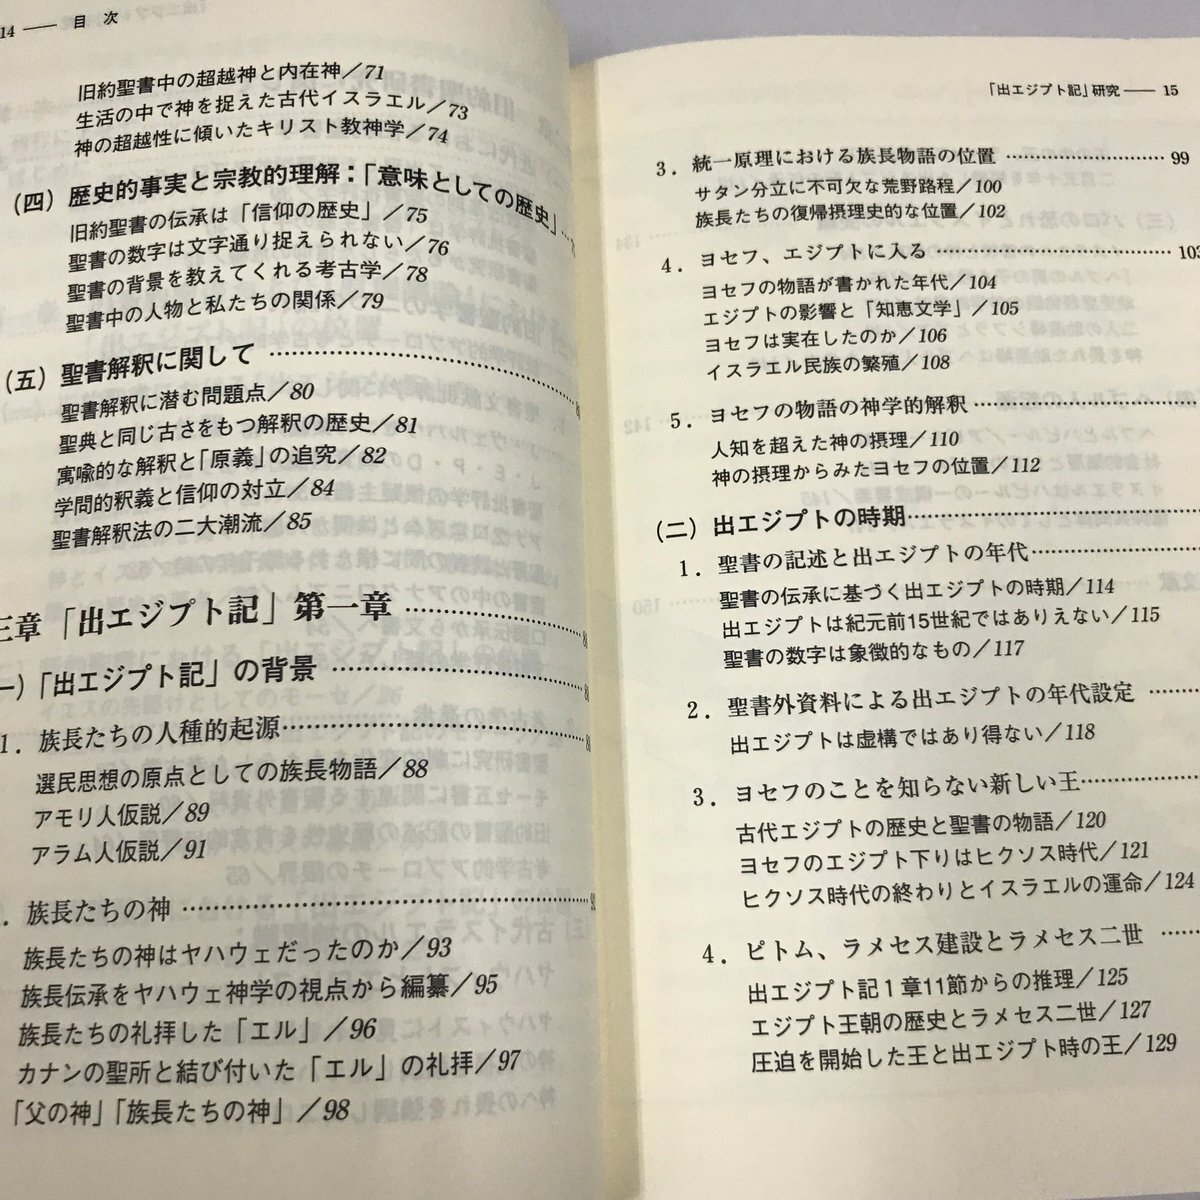 14 —— 目 次
旧約聖書中の超越神と内在神／71
生活の中で神を捉えた古代イスラエル／73
神の超越性に傾いたキリスト教神学／74
(四) 歴史的事実と宗教的理解：「意味としての歴史」…
旧約聖書の伝承は「信仰の歴史」／75
聖書の数字は文字通り捉えられない／76
聖書の背景を教えてくれる考古学／78
聖書中の人物と私たちの関係／79
(五) 聖書解釈に関して ……………………
聖書解釈に潜む問題点／80
聖典と同じ古さをもつ解釈の歴史／81
寓喩的な解釈と「原義」の追究／82
学問的釈義と信仰の対立／84
聖書解釈法の二大潮流／85
三章 「出エジプト記」第一章 ……………
一) 「出エジプト記」の背景 ………………
1. 族長たちの人種的起源……………………
選民思想の原点としての族長物語／88
アモリ人仮説／89
アラム人仮説／91
. 族長たちの神 ……………………………
族長たちの神はヤハウェだったのか／93
族長伝承をヤハウェ神学の視点から編纂／95
族長たちの礼拝した「エル」／96
カナンの聖所と結び付いた「エル」の礼拝／97
「父の神」「族長たちの神」／98
「出エジプト記」研究 —— 15
3. 統一原理における族長物語の位置 ……………… 99
サタン分立に不可欠な荒野路程／100
族長たちの復帰摂理史的な位置／102
4. ヨセフ、エジプトに入る ……………………… 103
ヨセフの物語が書かれた年代／104
エジプトの影響と「知恵文学」／105
ヨセフは実在したのか／106
イスラエル民族の繁殖／108
5. ヨセフの物語の神学的解釈 …………………
人知を超えた神の摂理／110
神の摂理からみたヨセフの位置／112
(二) 出エジプトの時期……………………………
1. 聖書の記述と出エジプトの年代………………
聖書の伝承に基づく出エジプトの時期／114
出エジプトは紀元前15世紀ではありえない／115
聖書の数字は象徴的なもの／117
2. 聖書外資料による出エジプトの年代設定 ……
出エジプトは虚構ではあり得ない／118
3. ヨセフのことを知らない新しい王……………
古代エジプトの歴史と聖書の物語／120
ヨセフのエジプト下りはヒクソス時代／121
ヒクソス時代の終わりとイスラエルの運命／124
4. ピトム、ラメセス建設とラメセス二世 ……
出エジプト記1章11節からの推理／125
エジプト王朝の歴史とラメセス二世／127
圧迫を開始した王と出エジプト時の王／129